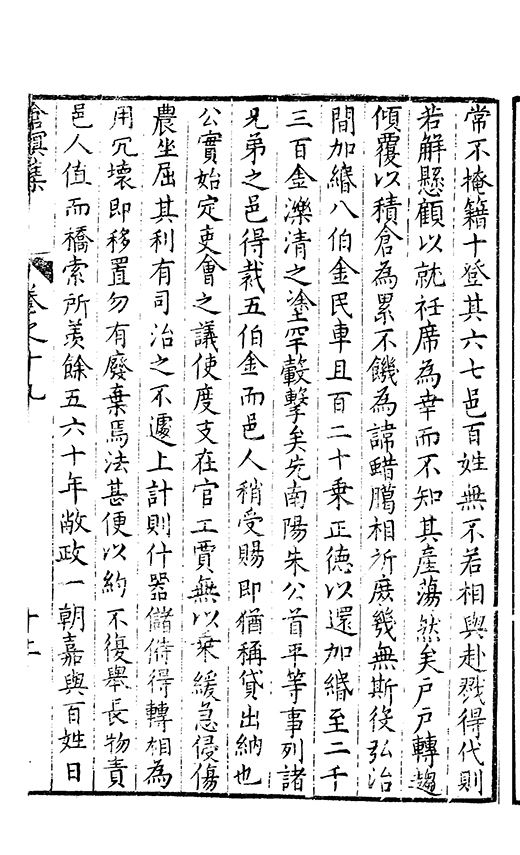 常不掩籍十登其六七邑百姓無不若相與赴戮得代則
若解懸顧以就衽席為幸而不知其產蕩然矣戶戶轉趨
傾覆以積倉為累不饑為諱蜡臈相祈庶幾無斯役弘治
間加緡八伯金民車且百二十乘正德以還加緡至二千
三百金濼清之塗罕轂擊矣先南陽朱公首平等事列諸
兄弟之邑得裁五伯金而邑人稍受賜即猶稱貸出納也
公實始定吏會之議使度支在官工賈無以乘緩急侵傷
農坐屈其利有司治之不遽上計則什器儲偫得轉相為
用冗壞即移置勿有廢棄焉法甚便以約不復舉長物責
邑人值而橋索所羨餘五六十年敝政一朝嘉與百姓日
滄溟集
卷之十九
十二